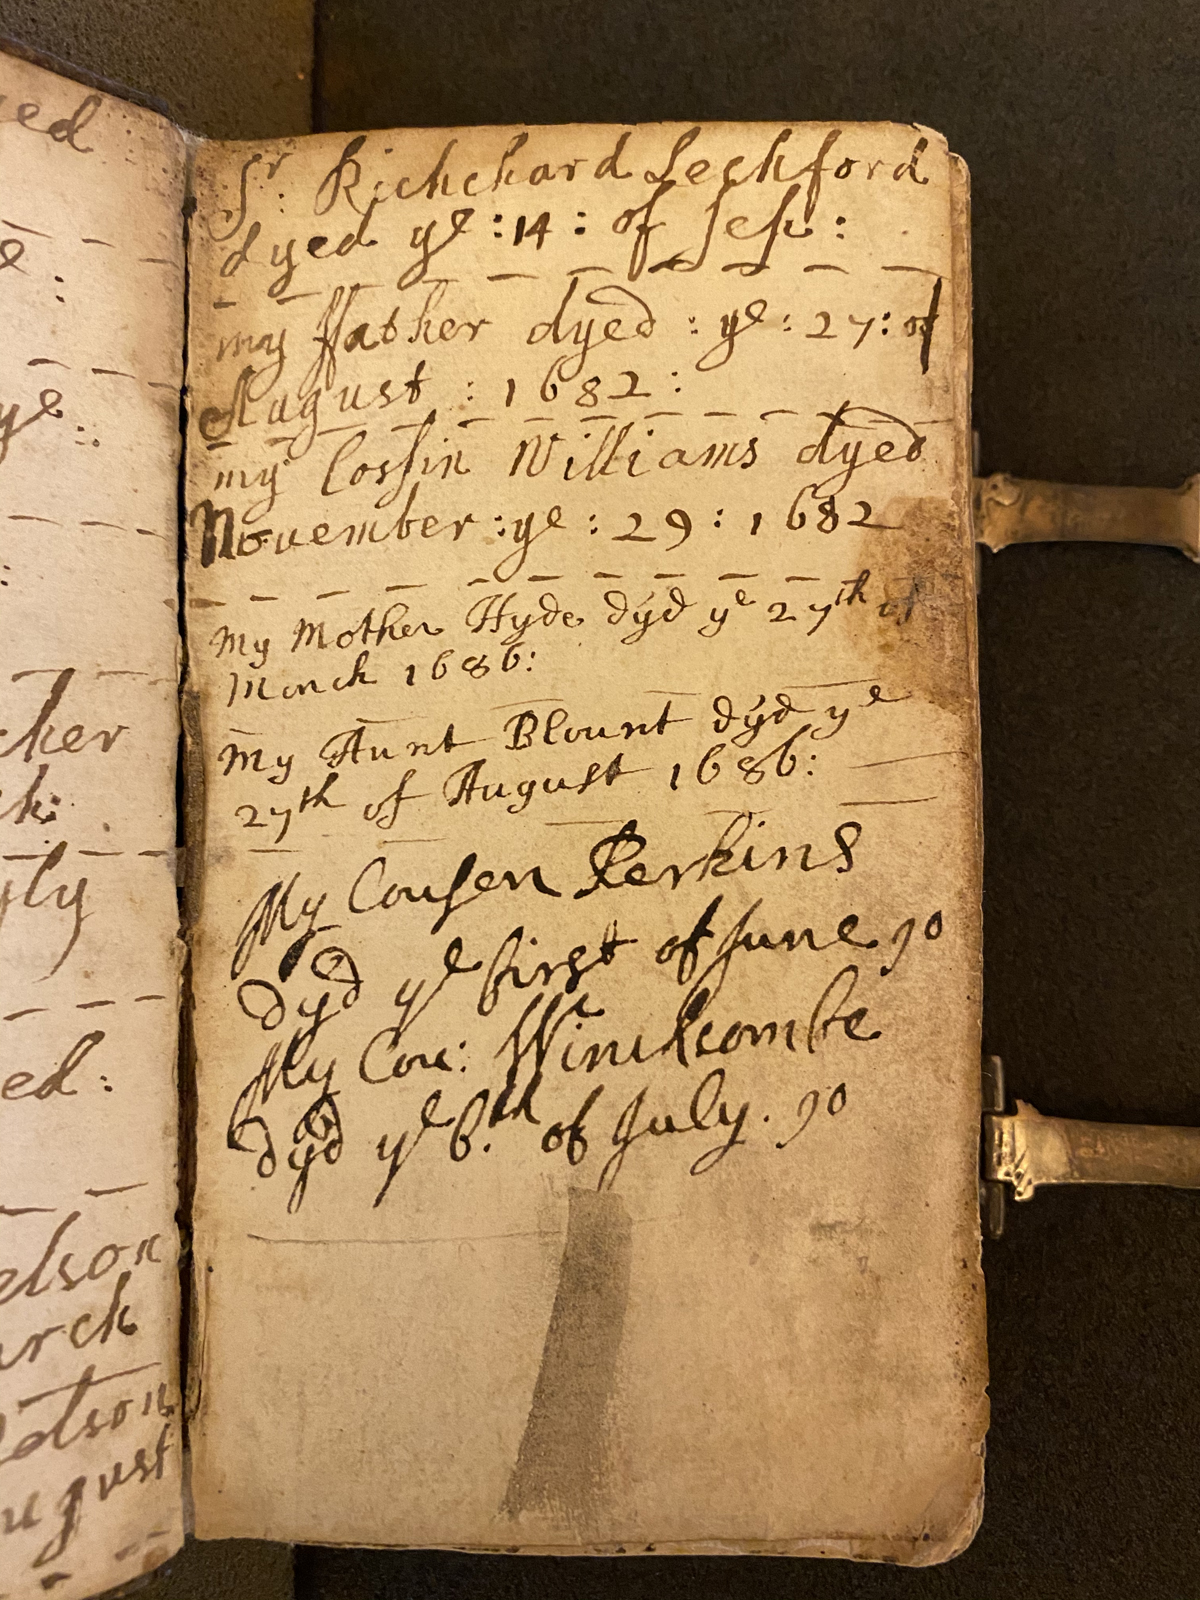 ed
e
:
ye:
:
cher
ch:
ly
ed:
elson
arch
elson
August
Sr: Richchard Lechford
dyed ye :14: of Sep:
my ffather dyed : ye : 27: of
August : 1682 :
my Cossin Williams dyed
November :ye : 29 : 1682
My Mother Hyde dyd ye 27th of
March 1686:
My Aunt Blount dyd ye
27th of August 1686:
My Cousen Perkins
dyd ye first of June 90
My Cou: Winchcombe
dyd ye 6.th of July. 90